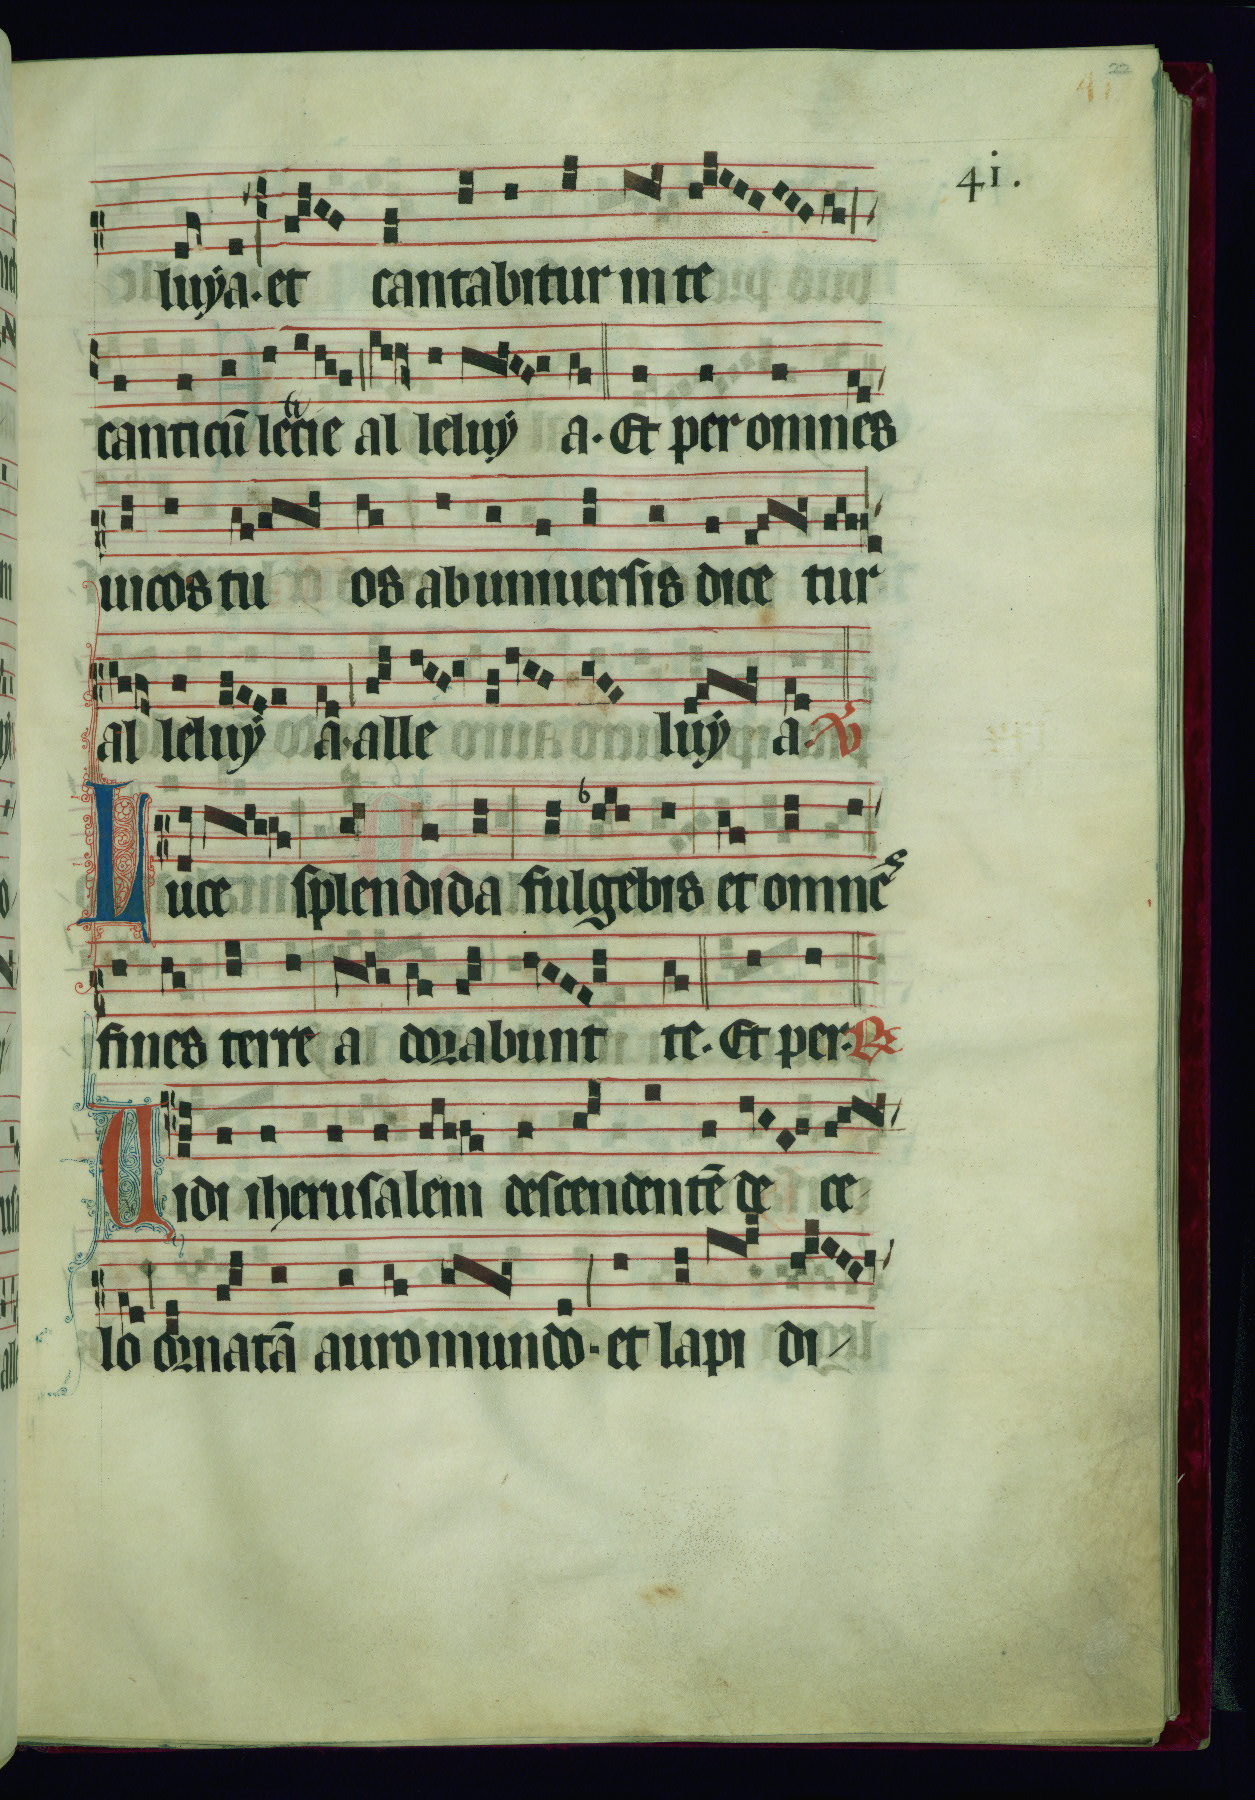 22
41
4i.
luÿa·et cantabitur in te
canticū letic̄ie al leluÿ a· Et per omnes
uicos tu os ab uniuersis dice tur
al leluÿ a·alle luÿ a· V̄
Luce splendida fulgebis et omnēs
fines terre a dorabunt te· Et per· R̄
Uidi iherusalem descendentē de ce
lo ornatā auro mundo· et lapi di/